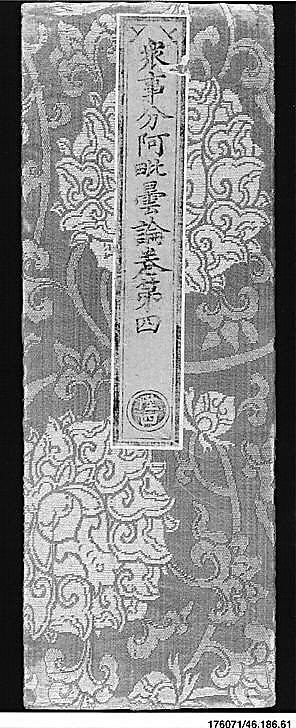 衆事分阿毗曇論卷第四
176071/46.186.61